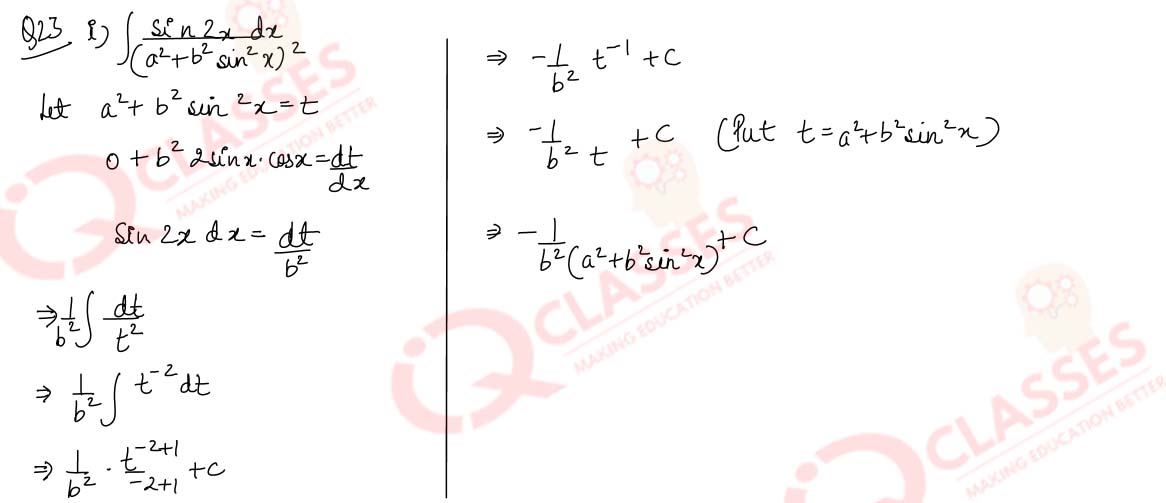 Q23 i) ∫ sin 2x dx / (a² + b² sin² x)²
Let a² + b² sin ²x = t
0 + b² 2 sin x · cos x = dt/dx
Sin 2x dx = dt/b²
⇒ 1/b² ∫ dt/t²
⇒ 1/b² ∫ t⁻² dt
⇒ 1/b² · t⁻²⁺¹/-2+1 + C
⇒ -1/b² t⁻¹ + C
⇒ -1/b² t + C (Put t = a² + b² sin² x)
⇒ -1/b² (a² + b² sin² x) + C
IQ CLASSES
MAKING EDUCATION BETTER
IQ CLASSES
MAKING EDUCATION BETTER
CLASSES
MAKING EDUCATION BETTER